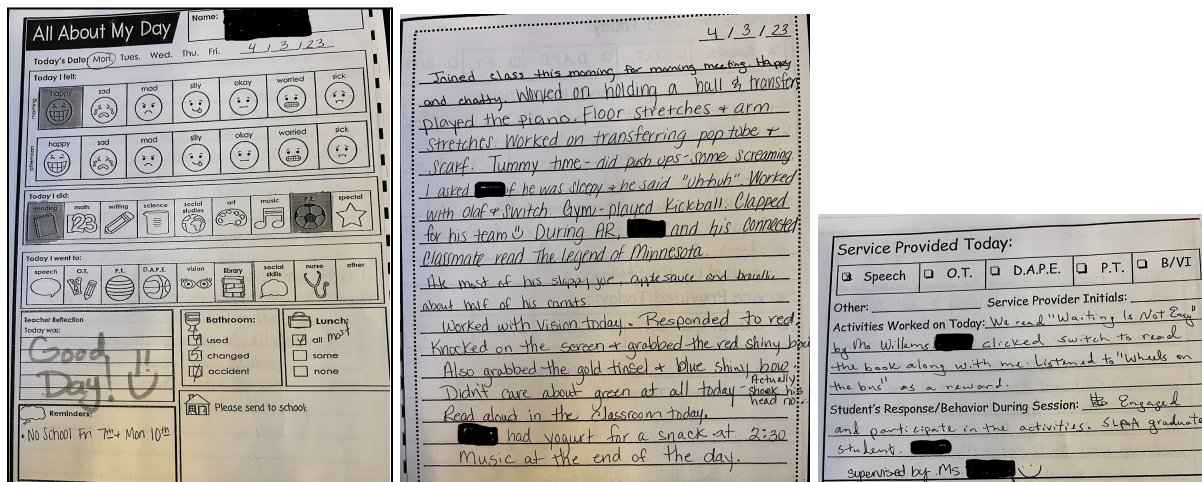 All About My Day
Name:
Today's Date: Mon. Tues. Wed. Thu. Fri. 4 / 3 / 23
Today I felt:
morning
happy sad mad silly okay worried sick
afternoon
happy sad mad silly okay worried sick
Today I did:
reading math writing science social studies art music P.E. special
Today I went to:
speech O.T. P.T. D.A.P.E. vision library social skills nurse other
Teacher Reflection
Today was:
Good
Day!!
Bathroom:
used
changed
accident
Lunch:
all most
some
none
Reminders:
• No School Fri 7th + Mon 10th
Please send to school:
4 / 3 / 23
Joined class this morning for morning meeting. Happy
and chatty. Worked on holding a ball & transfers
played the piano. Floor stretches + arm
stretches. Worked on transferring pop tube +
scarf. Tummy time - did push ups - some screaming.
I asked if he was sleepy + he said "uh-huh". Worked
with Olaf + switch Gym - played Kickball. Clapped
for his team During AR, and his connected
classmate read The legend of Minnesota.
Ate most of his sloppy joe, applesauce and brocolli
about half of his carrots.
Worked with Vision today. Responded to red
Knocked on the screen + grabbed the red shiny bow
Also grabbed the gold tinsel + blue shiny bow.
Didn't care about green at all today - Actually shook his head no.
Read aloud in the classroom today.
had yogurt for a snack at 2:30
Music at the end of the day.
Service Provided Today:
Speech O.T. D.A.P.E. P.T. B/VI
Other: Service Provider Initials:
Activities Worked on Today: We read "Waiting Is Not Easy"
by Mo Willems clicked switch to read
the book along with me. Listened to "Wheels on
the bus" as a reward.
Student's Response/Behavior During Session: Engaged
and participate in the activities. graduate
student.
supervised by Ms.